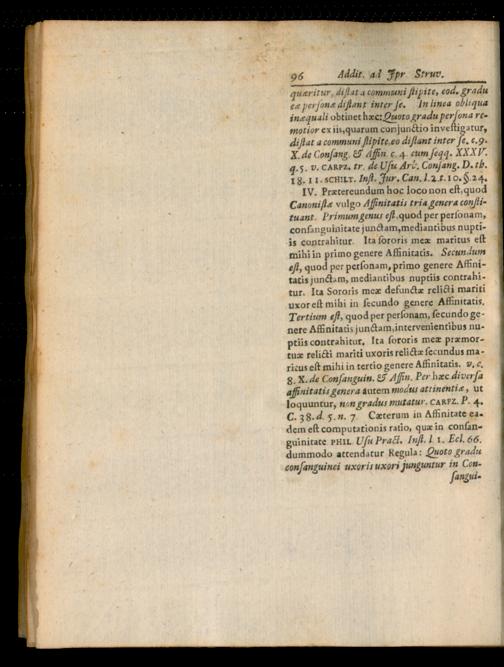 96 Addit. ad Jpr Struv.
quæritur, distat a communi stipite, eod. gradu
eæ personæ distant inter se. In linea obliqua
inæquali obtinet hæc: Quoto gradu persona re-
motior ex iis, quarum conjunctio investigatur,
distat a communi stipite eo distant inter se. c. 9.
X. de Consang. & Affin c. 4. cum seqq. XXXV.
q. 5. v. CARPZ. tr. de Usu Arb. Consang. D. th.
18. 11. SCHILT. Inst. Jur. Can. l. 2. t. 10. §. 24.
IV. Prætereundum hoc loco non est, quod
Canonistæ vulgo Affinitatis tria genera consti-
tuant. Primum genus est, quod per personam,
consanguinitate junctam, mediantibus nupti-
is contrahitur. Ita sororis meæ maritus est
mihi in primo genere Affinitatis. Secundum
est, quod per personam, primo genere Affini-
tatis junctam, mediantibus nuptiis contrahi-
tur. Ita Sororis meæ defunctæ relicti mariti
uxor est mihi in secundo genere Affinitatis.
Tertium est, quod per personam, secundo ge-
nere Affinitatis junctam, intervenientibus nu-
ptiis contrahitur. Ita sororis meæ præmor-
tuæ relicti mariti uxoris relictæ secundus ma-
ritus est mihi in tertio genere Affinitatis. v. c.
8. X. de Consanguin. & Affin. Per hæc diversa
affinitatis genera autem modus attinentiæ, ut
loquuntur, non gradus mutatur. CARPZ. P. 4.
C. 38. d. 5. n. 7 Cæterum in Affinitate ea-
dem est computationis ratio, quæ in consan-
guinitate PHIL. Usu Pract. Inst. l 1. Ecl. 66.
dummodo attendatur Regula: Quoto gradu
consanguinei uxoris uxori junguntur in Con-
sangui-